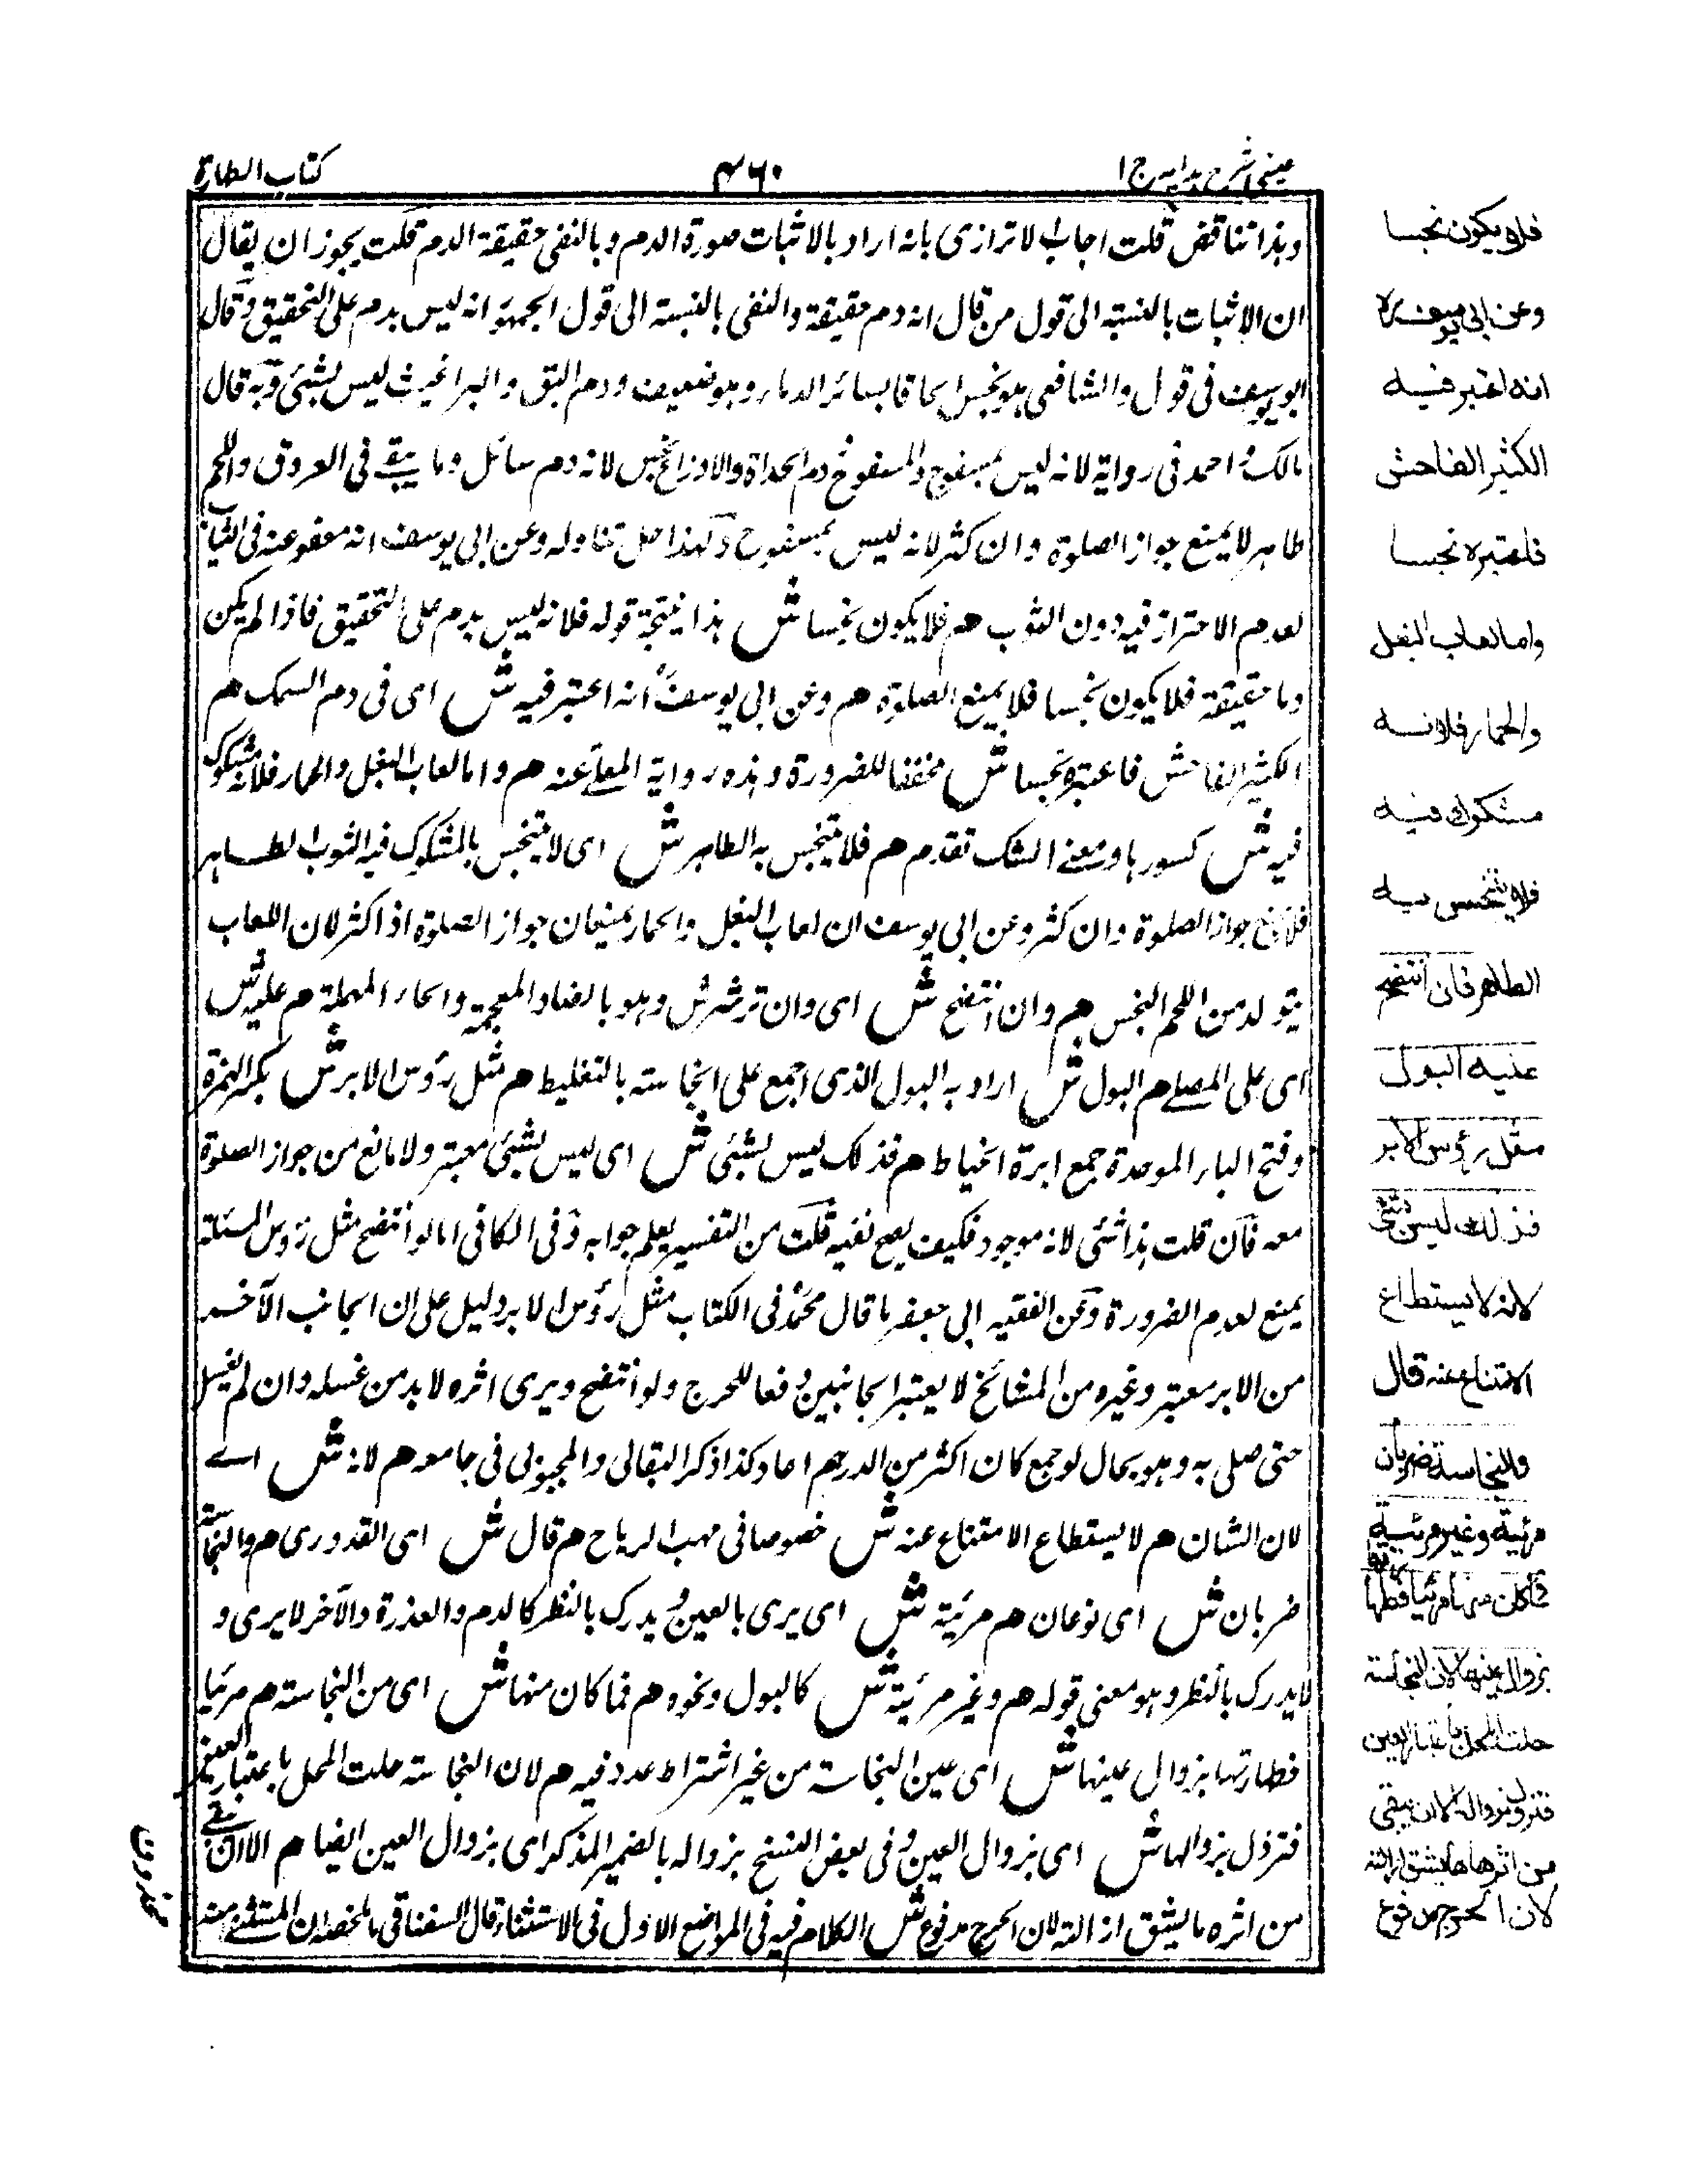 عینی شرح ہدایہ ج ۱
۴۶۰
کتاب الطہارۃ
وہذا تناقض قلت اجاب الاترازی بانہ اراد بالاثبات صورۃ الدم و بالنفی حقیقۃ الدم قلت یجوز ان یقال
ان الاثبات بالنسبۃ الی قول من قال انہ دم حقیقۃ والنفی بالنسبۃ الی قول الجمہور انہ لیس بدم علی التحقیق وقال
ابو یوسف فی قول والشافعی ہو نجس الحاقا بسائر الدماء وہو ضعیف ودم البق والبراغیث لیس بشئی وبہ قال
مالک و احمد فی روایۃ لانہ لیس بمسفوح ودم الحداۃ والاوزاغ نجس لانہ دم سائل وما یبقے فی العروق واللحم
طاہر لا یمنع جواز الصلوۃ وان کثر لانہ لیس بمسفوح ولہذا حل تناولہ وعن ابی یوسف انہ معفو عنہ فی
لعدم الاحتراز فیہ دون الثوب ھم فلا یکون نجسا ش ہذا نتیجۃ قولہ فلانہ لیس بدم علی التحقیق فاذا لم یکن
دما حقیقۃ فلا یکون نجسا فلا یمنع الصلوۃ ھم وعن ابی یوسف انہ اعتبر فیہ ش ای فی دم السمک ھم
الکثیر الفاحش فاعتبرہ نجسا ش مخففا للضرورۃ وہذہ روایۃ المعلے عنہ ھم واما لعاب البغل والحمار فلانہ مشکوک
فیہ ش کسورہما ومعنے الشک تقدم ھم فلا یتنجس بہ الطاہر ش ای لا یتنجس بالمشکوک فیہ الثوب الطاہر
فلا یمنع جواز الصلوۃ وان کثر وعن ابی یوسف ان لعاب البغل والحمار یمنعان جواز الصلوۃ اذا کثر لان اللعاب
یتولد من اللحم النجس ھم وان انتضح ش ای وان ترشرش وہو بالضاد المعجمۃ والحاء المہملۃ ھم علیہ ش
ای علی المصلے ھم البول ش اراد بہ البول الذی اجمع علی نجاستہ بالتغلیط ھم مثل رؤس الابر ش بکسر الہمزۃ
وفتح الباء الموحدۃ جمع ابرۃ الخیاط ھم فذلک لیس بشئی ش ای لیس بشئی معتبر ولا مانع من جواز الصلوۃ
معہ فان قلت ہذا شئی لانہ موجود فکیف یصح نفیہ قلت من التفسیر یعلم جوابہ وفی الکافی اما لو انتضح مثل رؤس المسلۃ
یمنع لعدم الضرورۃ وعن الفقیہ ابی جعفر ما قال محمد فی الکتاب مثل رؤس الابر دلیل علی ان الجانب الآخر
من الابر معتبر وغیرہ من المشائخ لا یعتبر الجانبین دفعا للحرج ولو انتضح ویری اثرہ لا بد من غسلہ وان لم یغسل
حتی صلی بہ وہو بحال لو جمع کان اکثر من الدرہم اعاد کذا ذکر البقالی والمحبوبی فی جامعہ ھم لانہ ش اے
لان الشان ھم لا یستطاع الامتناع عنہ ش خصوصا فی مہب الریاح ھم قال ش ای القدوری ھم والنجاسۃ
ضربان ش ای نوعان ھم مرئیۃ ش ای یری بالعین و یدرک بالنظر کالدم والعذرۃ والآخر لا یری و
لا یدرک بالنظر وہو معنی قولہ ھم وغیر مرئیۃ ش کالبول ونحوہ ھم فما کان منہا ش ای من النجاستہ ھم مرئیا
فطہارتہا بزوال عینہا ش ای عین النجاستہ من غیر اشتراط عدد فیہ ھم لان النجاستہ حلت المحل باعتبار العین
فتزول بزوالہا ش ای بزوال العین وفی بعض النسخ بزوالہ بالضمیر المذکر ای بزوال العین ایضا ھم الا ان یبقے
من اثرہ ما یشق ازالتہ لان الحرج مدفوع ش الکلام فیہ فی المواضع الاول فی الاستثناء قال السغناقی ما ملخصہ ان المستثنے منہ
فلا یکون نجسا
وعن ابی یوسف رہ
انہ اعتبر فیہ
الکثیر الفاحش
فاعتبرہ نجسا
واما لعاب البغل
والحمار فلانہ
مشکوک فیہ
فلا یتنجس بہ
الطاھر فان انتضح
علیہ البول
مثل رؤس الابر
فذلک لیس بشئ
لانہ لا یستطاع
الامتناع عنہ قال
والنجاسۃ ضربان
مرئیۃ وغیر مرئیۃ
فما کان منہا مرئیا فطہارتہا
بزوال عینہا لان النجاستہ
حلت المحل باعتبار العین
فتزول بزوالہ الا ان یبقی
من اثرھا ما یشق ازالتہ
لان الحرج مدفوع